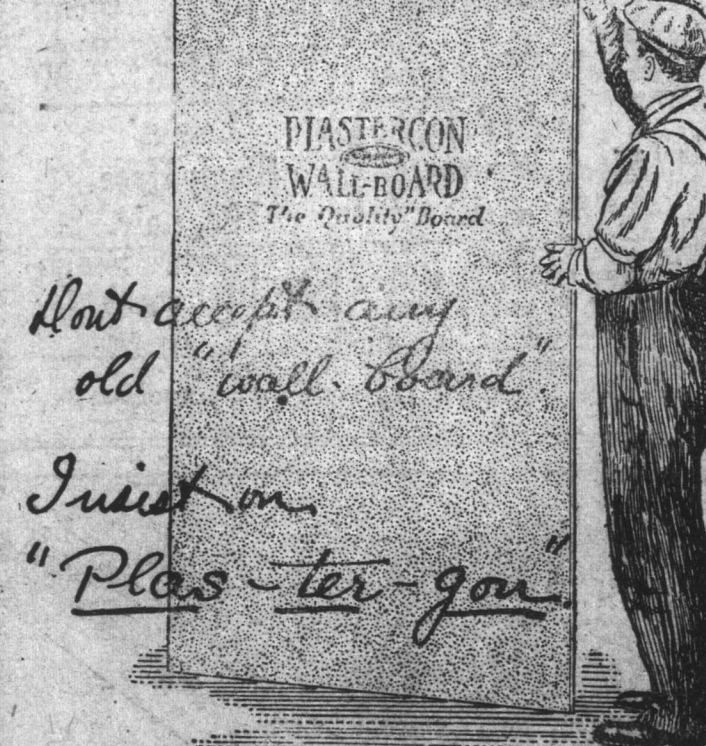 PLASTERGON
WALL-BOARD
The "Quality" Board
Dont accept any
old "wall-board".
Insist on
"Plas-ter-gon".